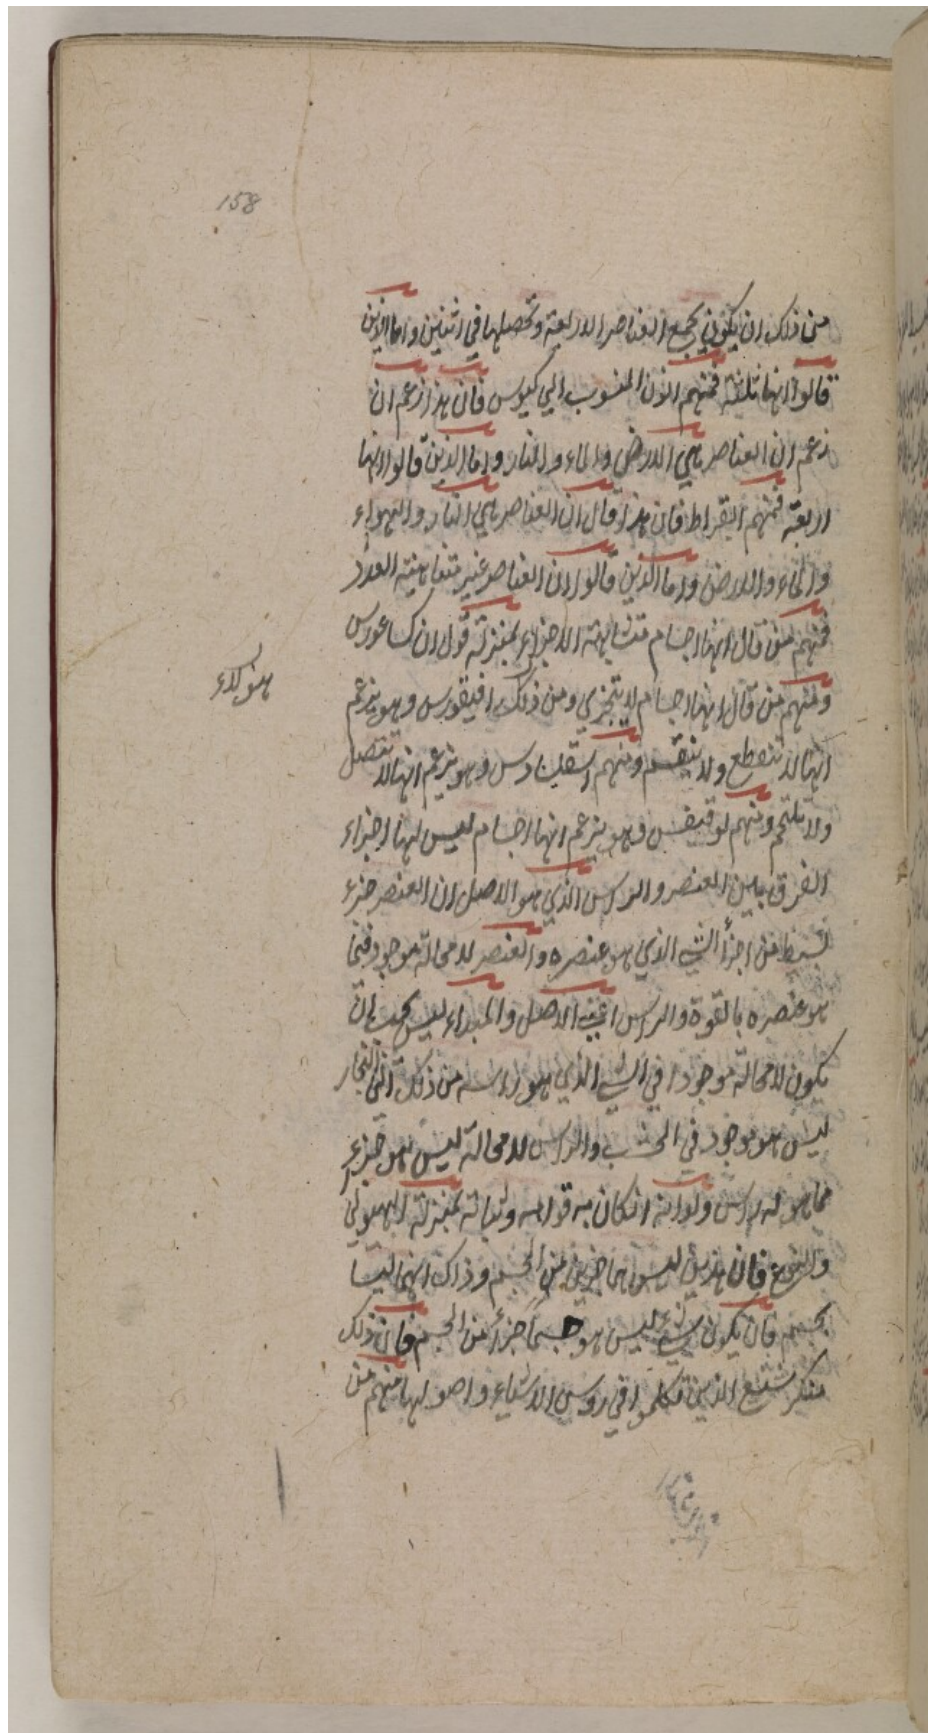 158
من ذلك ان يكون يجمع العناصر الاربعة وتحصلها في اثنين واما الذين
قالوا انها ثلثة فمنهم الذن المنسوب الي كيوس فان هذا زعم ان
زعم ان العناصر هي الارض والماء والنار واما الذين قالوا انها
اربعة فمنهم البقراط فان هذا قال ان العناصر هي النار والهواء
والماء والارض واما الذين قالوا ان العناصر غير متناهية العدد
فمنهم من قال انها اجسام متشابهة الاجزاء بمنزلة قول ان كساغورس
ومنهم من قال انها اجسام لا يتجزي ومن ذلك افيقورس وهو يزعم
هنو كلاء
انها لا تنقطع ولا ينقسم ومنهم اسقليادس وهو يزعم انها لا تتصل
ولا تلتحم ومنهم لوقيفس وهو يزعم انها اجسام ليس لها اجزاء
الفرق بين العنصر والراس الذي هو الاصل ان العنصر جزء
بسيط من اجزأ الشي الذي هو عنصره والعنصر لا محالة موجود فيما
هو عنصره بالقوة والراس اعني الاصل والمبداء ليس يجب ان
يكون لا محالة موجودا في الشي الذي هو راسه من ذلك ان النجار
ليس هو موجود في الخشب والراس لا محالة ليس هو جزء
مما هو له راس ولوانه انكان به قوامه وثباته بمنزلة الهيولي
والنوع فان هذين ليسوا هما جزئين من الجسم وذاك انهما ليسا
بجسم فان يكون شيء ليس هو جسما جزأ من الجسم فان ذلك
منكر شنع الذين تكلموا في روس الاشياء واصولها منهم من